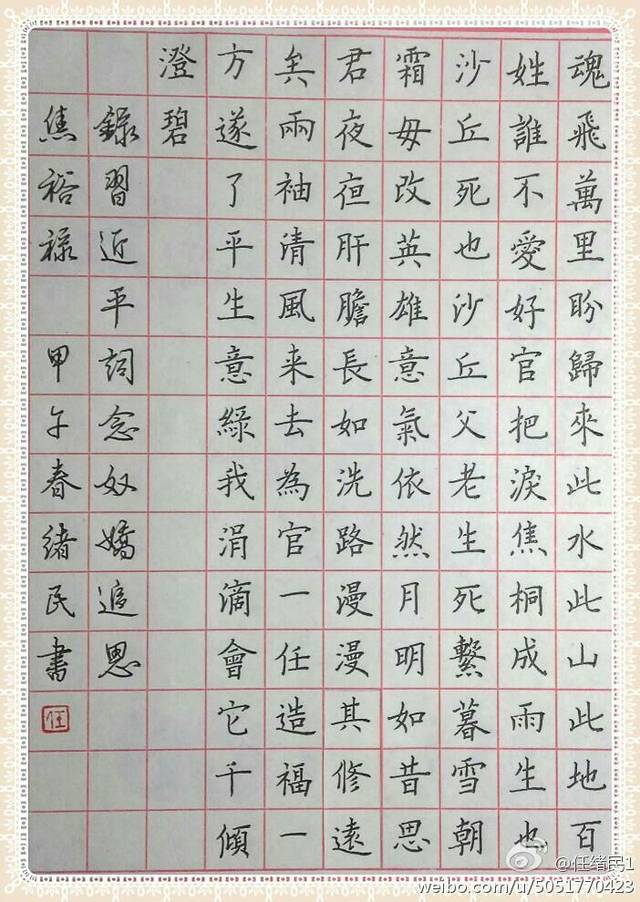 魂飛萬里盼歸來此水此山此地百
姓誰不愛好官把淚焦桐成雨生也
沙丘死也沙丘父老生死繫暮雪朝
霜毋改英雄意氣依然月明如昔思
君夜夜肝膽長如洗路漫漫其修遠
矣兩袖清風来去為官一任造福一
方遂了平生意綠我涓滴會它千傾
澄碧
錄習近平詞念奴嬌追思
焦裕禄 甲午春緒民書
任
@任绪民1
weibo.com/u/5051770423